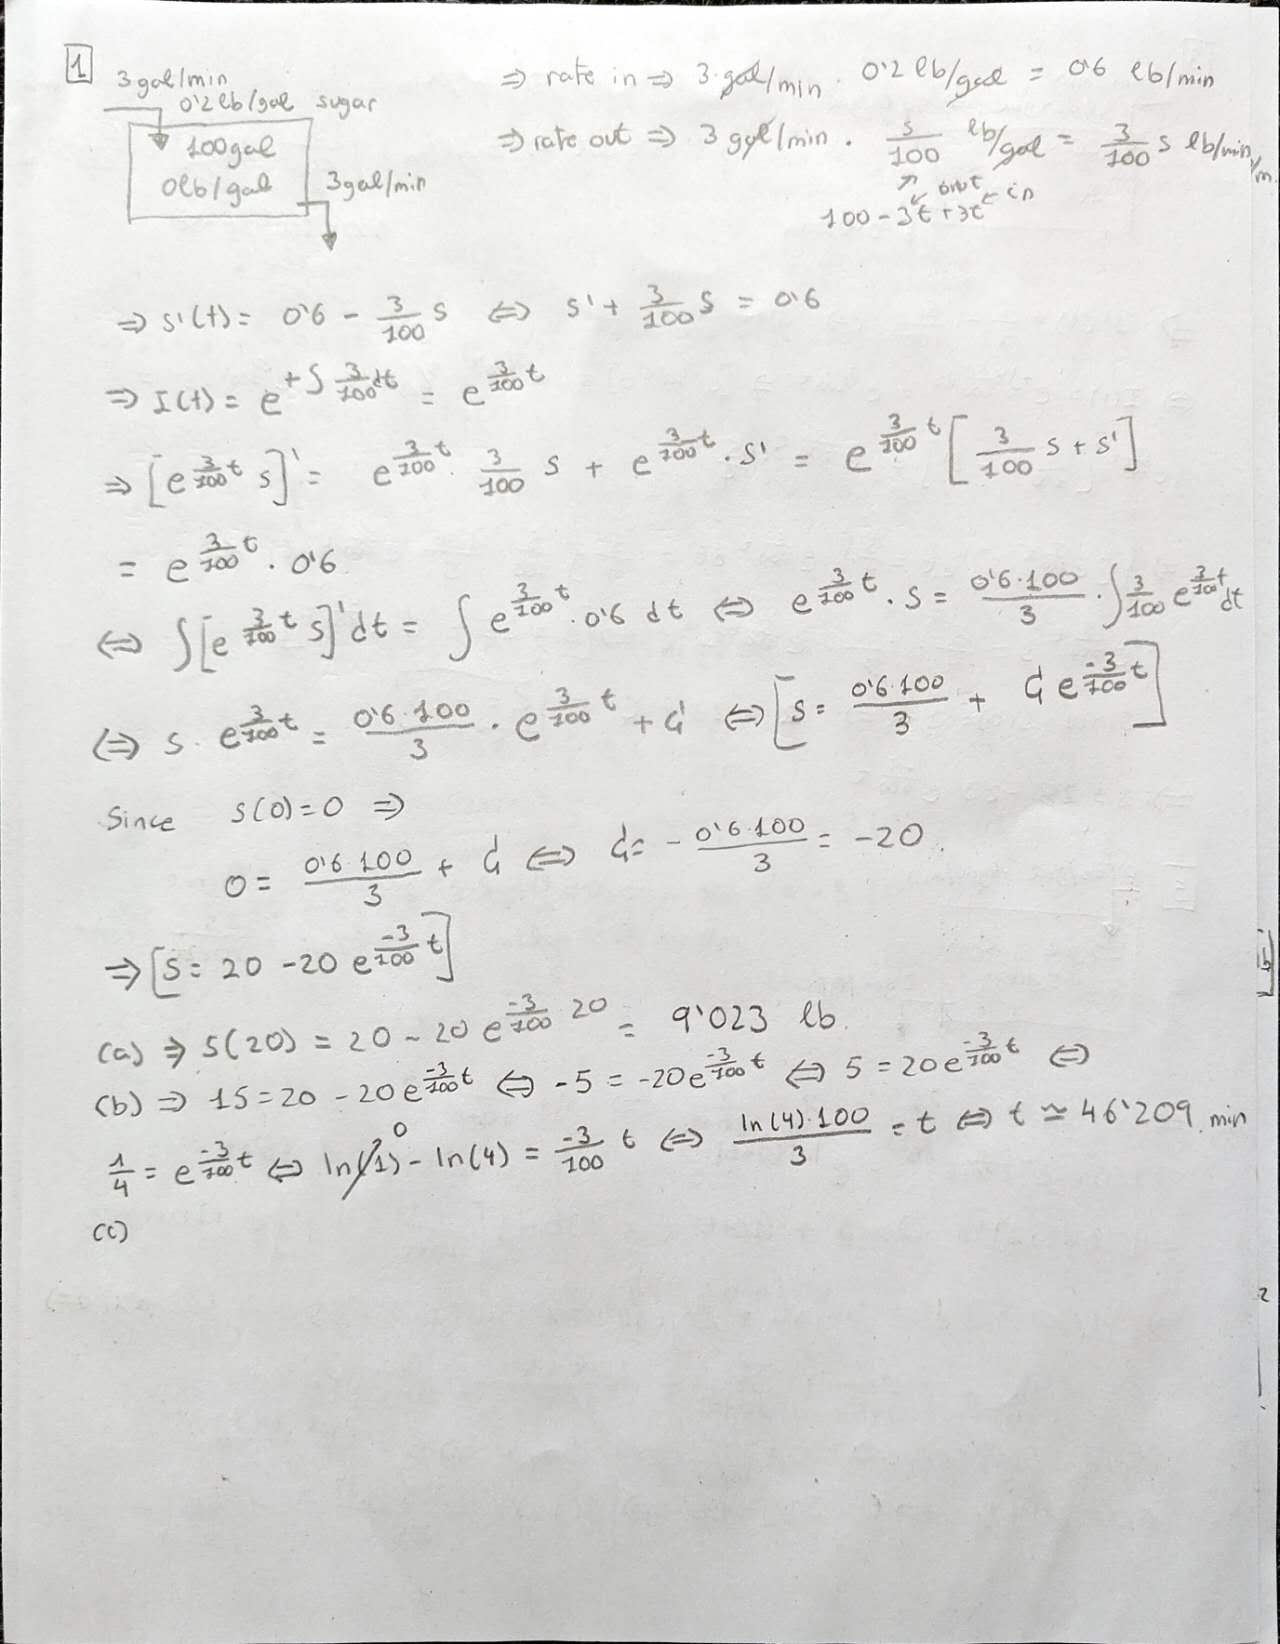 1
3 gal/min
0'2 lb/gal sugar
100gal
0lb/gal
3gal/min
⇒ rate in ⇒ 3 gal/min . 0'2 lb/gal = 0'6 lb/min
⇒ rate out ⇒ 3 gal/min . s/100 lb/gal = 3/100 s lb/min
out in
100 - 3t + 3t
⇒ s'(t) = 0'6 - 3/100 s ⇔ s' + 3/100 s = 0'6
⇒ I(t) = e^(+∫ 3/100 dt) = e^(3/100 t)
⇒ [e^(3/100 t) s]' = e^(3/100 t) . 3/100 s + e^(3/100 t) . s' = e^(3/100 t) [3/100 s + s']
= e^(3/100 t) . 0'6
⇔ ∫[e^(3/100 t) s]' dt = ∫ e^(3/100 t) . 0'6 dt ⇔ e^(3/100 t) . s = 0'6·100/3 . ∫ 3/100 e^(3/100 t) dt
⇔ s . e^(3/100 t) = 0'6·100/3 . e^(3/100 t) + C ⇔ [s = 0'6·100/3 + C e^(-3/100 t)]
Since s(0) = 0 ⇒
0 = 0'6·100/3 + C ⇔ C = - 0'6·100/3 = -20
⇒ [s = 20 - 20 e^(-3/100 t)]
(a) ⇒ s(20) = 20 - 20 e^(-3/100 20) = 9'023 lb.
(b) ⇒ 15 = 20 - 20 e^(-3/100 t) ⇔ -5 = -20 e^(-3/100 t) ⇔ 5 = 20 e^(-3/100 t) ⇔
1/4 = e^(-3/100 t) ⇔ ln(1) 0 - ln(4) = -3/100 t ⇔ ln(4)·100/3 = t ⇔ t ≃ 46'209 min
(c)